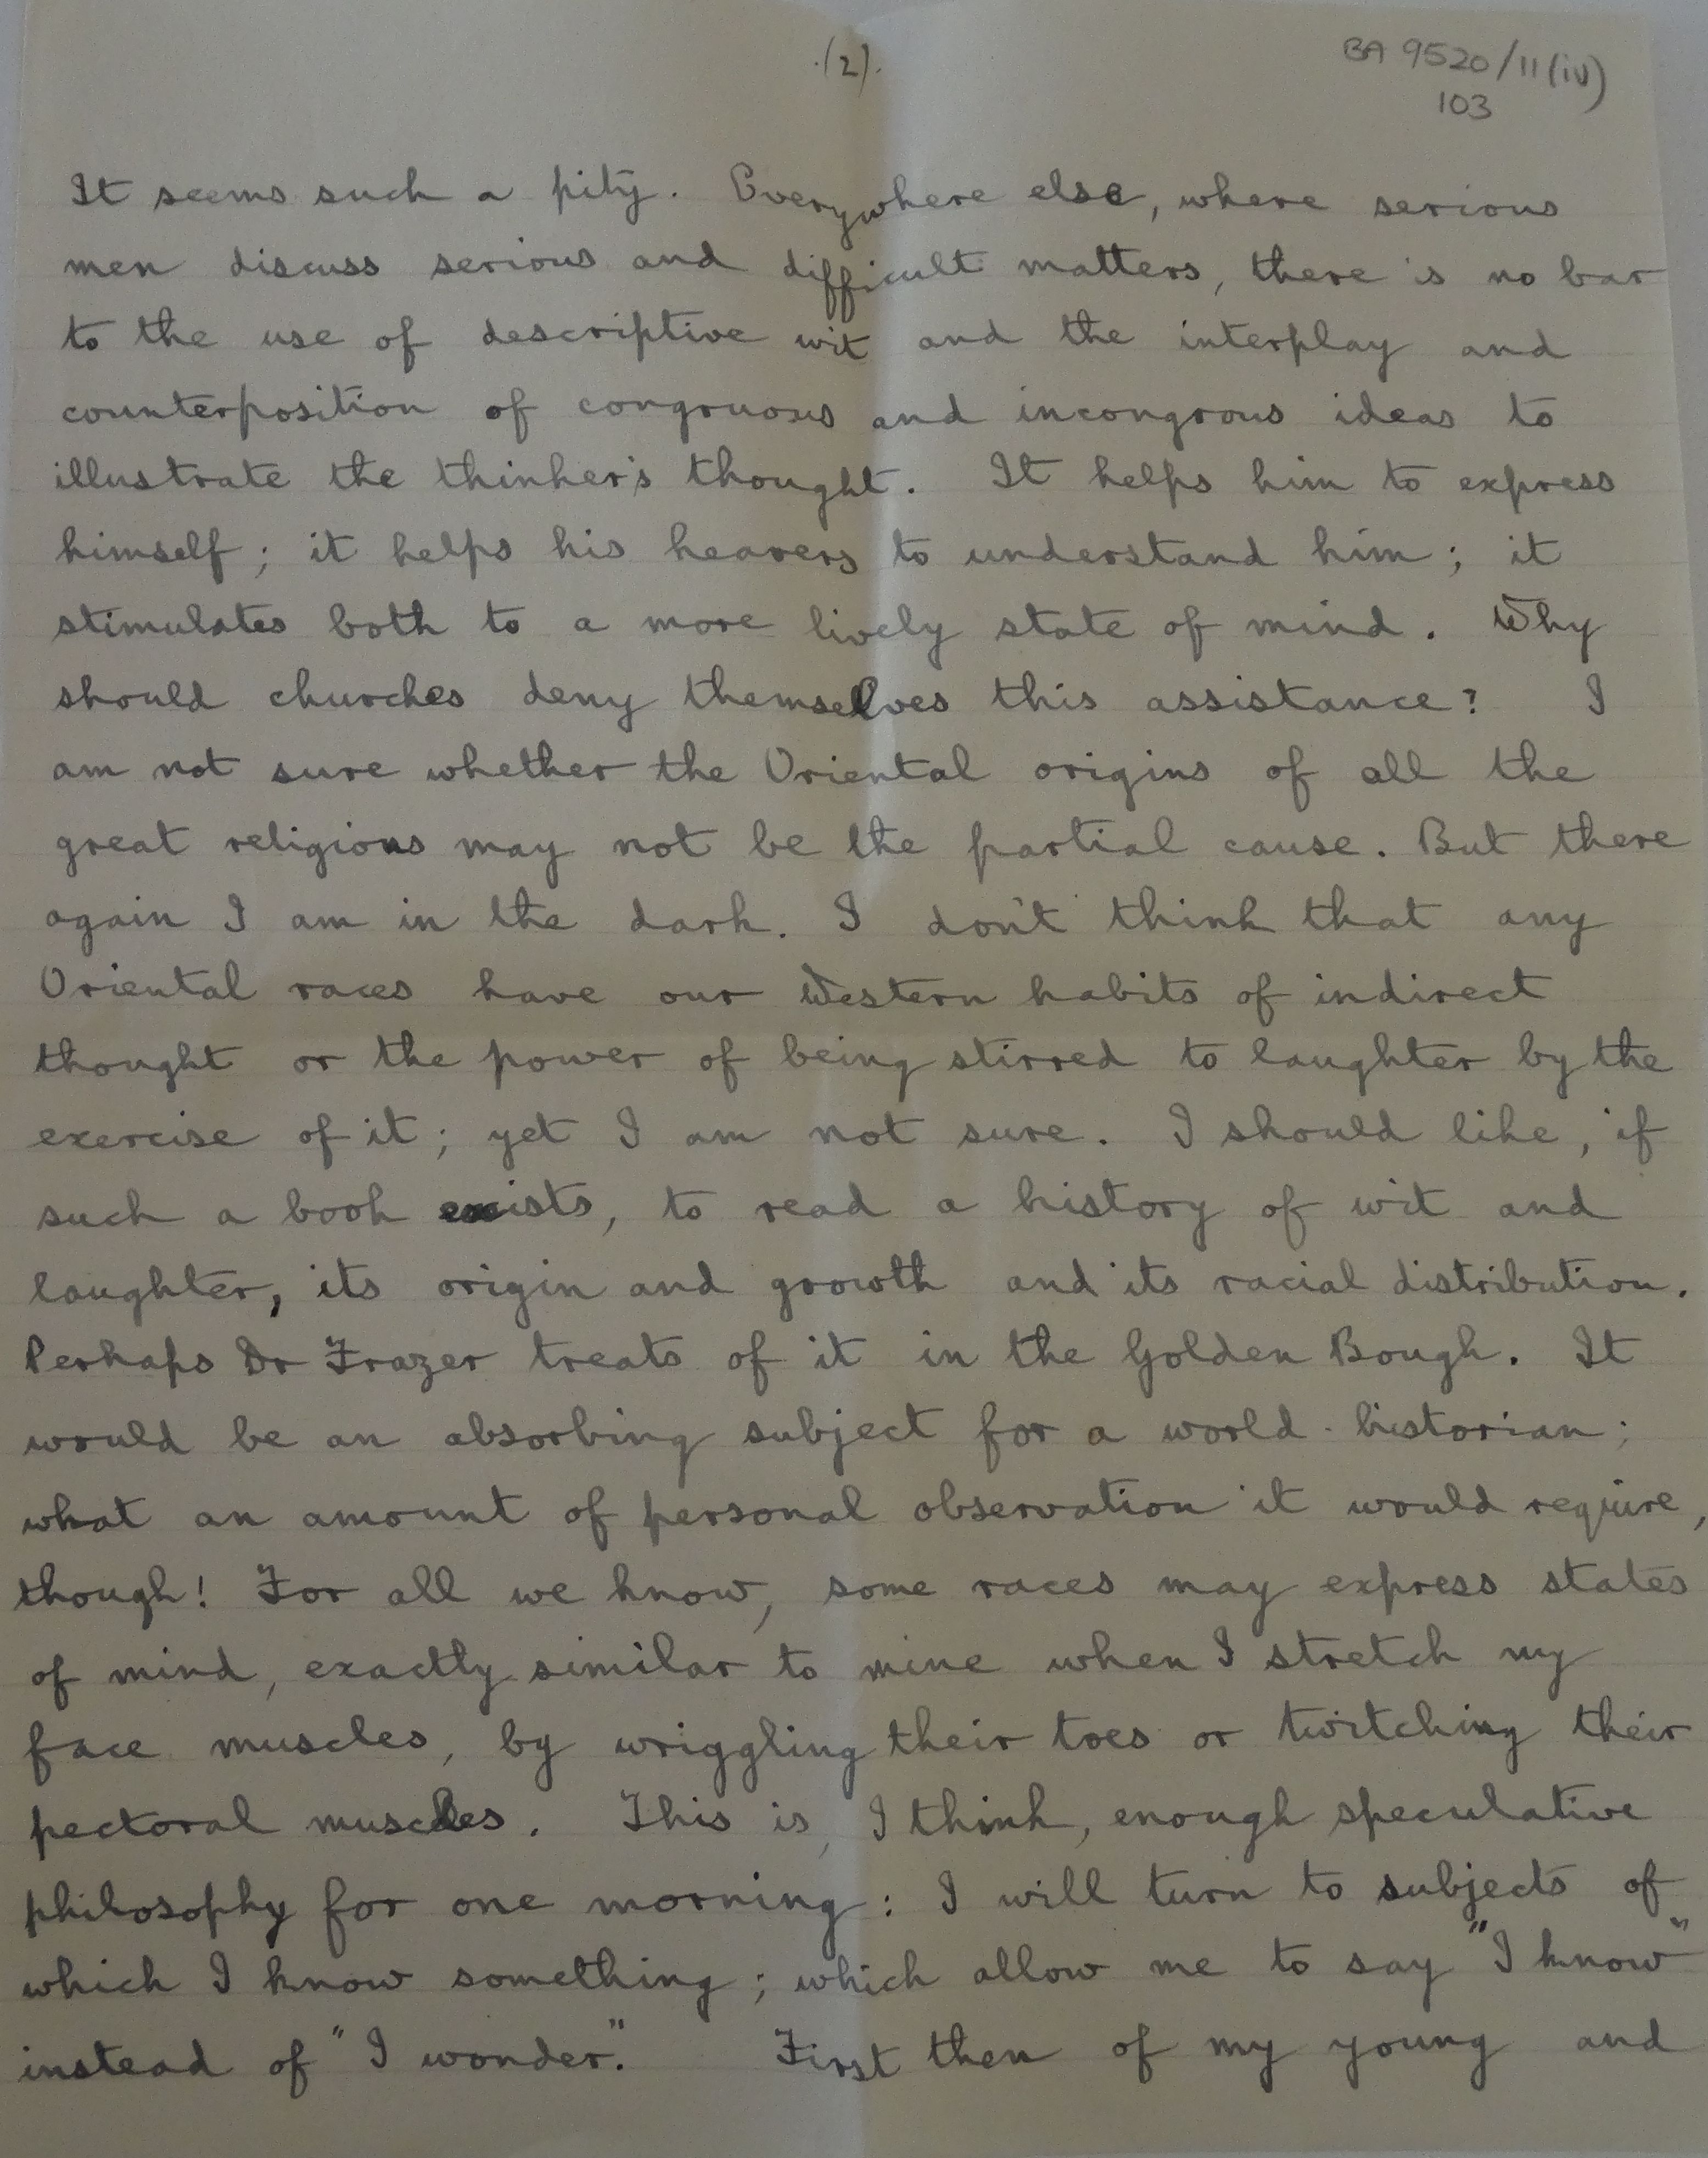 (2).
BA 9520/11(iv)
103
It seems such a pity. Everywhere else, where serious
men discuss serious and difficult matters, there is no bar
to the use of descriptive wit and the interplay and
counterposition of congruous and incongrous ideas to
illustrate the thinker's thought. It helps him to express
himself; it helps his hearers to understand him; it
stimulates both to a more lively state of mind. Why
should churches deny themselves this assistance? I
am not sure whether the Oriental origins of all the
great religions may not be the partial cause. But there
again I am in the dark. I don't think that any
Oriental races have our Western habits of indirect
thought or the power of being stirred to laughter by the
exercise of it; yet I am not sure. I should like, if
such a book exists, to read a history of wit and
laughter, its origin and growth and its racial distribution.
Perhaps Dr Frazer treats of it in the Golden Bough. It
would be an absorbing subject for a world-historian;
what an amount of personal observation it would require,
though! For all we know, some races may express states
of mind, exactly similar to mine when I stretch my
face muscles, by wriggling their toes or twitching their
pectoral muscles. This is, I think, enough speculative
philosophy for one morning: I will turn to subjects of
which I know something; which allow me to say "I know"
instead of "I wonder." First then of my young and